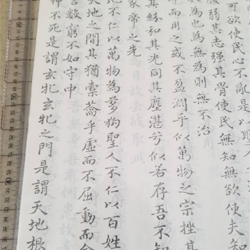 欲使民心不亂是
弱其志強其骨使民無知無欲使夫知
為無為則無不治
之或不盈淵乎似萬物之宗挫其
其紛和其光同其塵湛兮似若存吾不知
象帝之先
天地不仁以萬物為芻狗聖人不仁以百姓
天地之間其猶橐籥乎虛而不屈動而愈
言數窮不如守中
神不死是謂玄牝玄牝之門是謂天地根